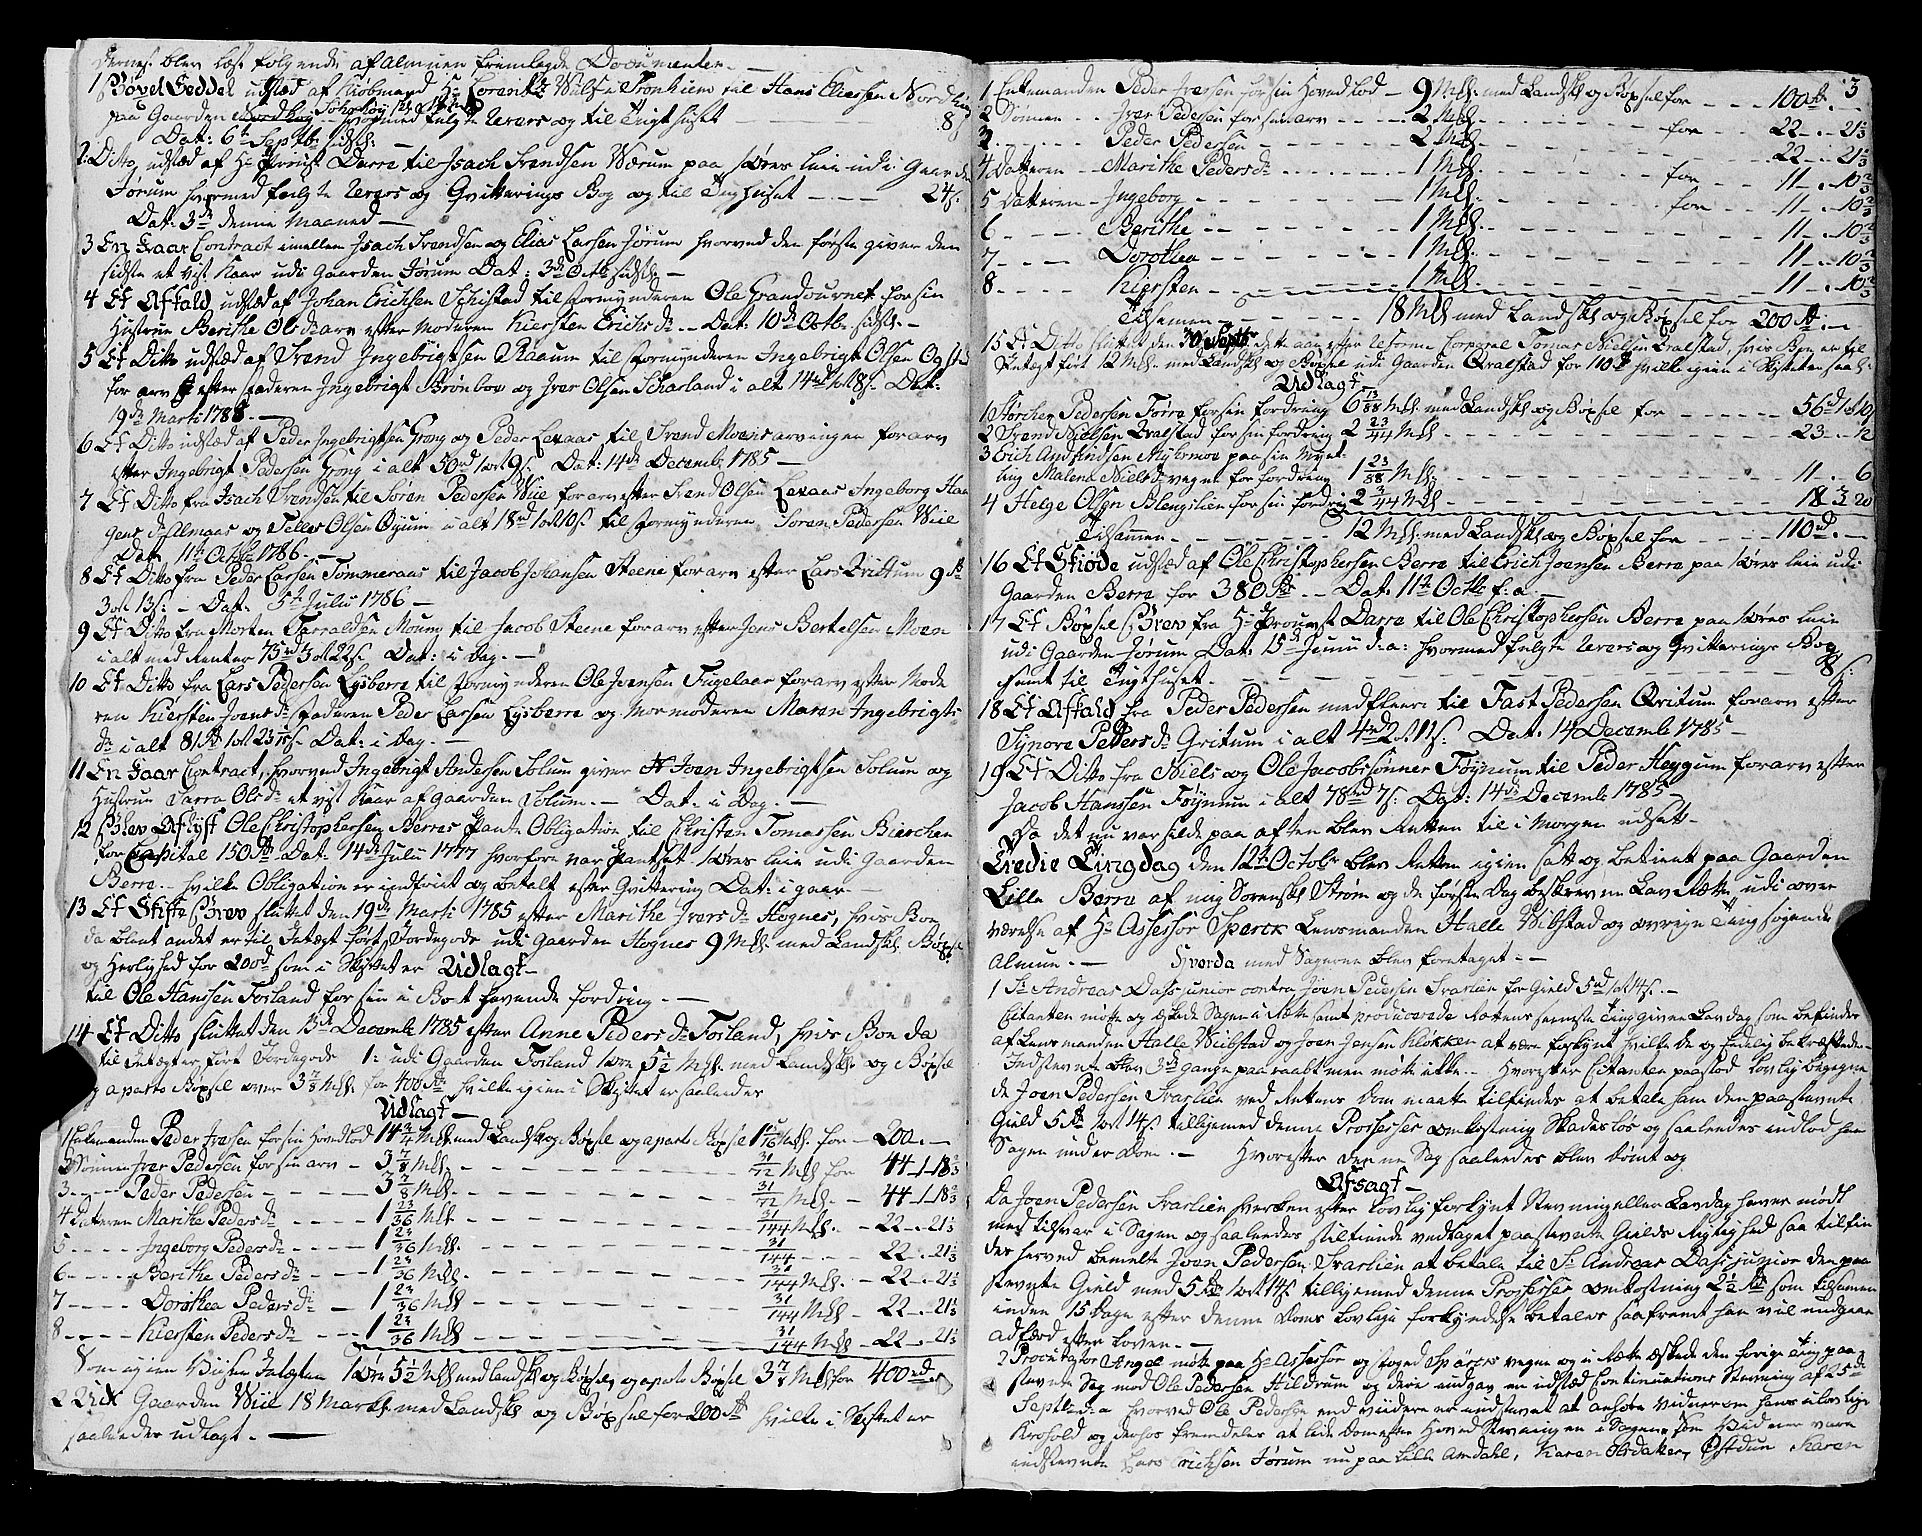 dernest blev læst følgende af Almuen fremlagde Documenter. —
1 Bøxel Seddel udstæd af Kiøbmand Hr Lorentz Wulf i Tronhiem til Hans Eliessen Nordhøy
paa Gaarden hvormed fulgte Revers og til Tugthuuset 8 s
Dat: 6te Septbr sidstl: —
2: Ditto udstæd af Hr Provst Darre til Isach Svendsen Wærum paa 1 øres leie udi Gaarden
Jørum hvormed fulgte Revers og Qvitterings Bog og til Tugthuset — 24 s.
Dat: 3de denne Maaned —
3 En Kaar Contract imellem Isach Svendsen og Elias Larsen Jørum hvorved den første giver den
sidste et vist Kaar udi Gaarden Jørum Dat: 3de Octbr sidstl: —
4 Et Afkald udstæd af Johan Erichsen Schistad til Formynderen Ole Grandournet for sin
Hustrue Berithe Olsdr arv efter Moderen Kiersten Erichsdr. — Dat: 10de Octbr sidstl. —
5 Et Ditto udstæd af Svend Ingebrigtsen Raaum til Formynderen Ingebrigt Olsen
for arv efter Faderen Ingebrigt Brønboe og Iver Olsen Scharland i alt 14 rd 1 ort 8 s. Dat:
19de Marti 1788. —
6 Et Ditto udstæd af Peder Ingebrigtsen Grong og Peder Lexaas til Svend Moens arvinger for arv
efter Ingebrigt Pedersen Grong i alt 50 rd 1 ort 9 s: Dat: 14de Decembr 1785 —
7 Et Ditto fra Isach Svendsen til Søren Pedersen Wiie for arv efter Svend Olsen Lexaas Ingeborg Haa
gensdr Almaas og Tellef Olsen Øyum i alt 18 rd 1 ort 10 s. til Formynderen Søren Pedersen Wiel
Dat: 11te Octbr 1786. —
8 Et Ditto fra Peder Larsen Tommeraas til Jacob Johansen Steene for arv efter Lars Qvittum 9 rd
3 ort 13 s: — Dat: 5te Julii 1786 —
9 Et Ditto fra Morten Tarraldsen Mouny til Jacob Steene for arv efter Jens Bertelsen Moen
i alt med Renter 73 rd 3 ort 22 s. Dat: i Dag. —
10 Et Ditto fra Lars Pedersen Lysberre til Formynderen Ole Svensen Fugelaar for arv efter Mode
ren Kiersten Joensdr Faderen Peder Larsen Lysberre og Mormoderen Maren Ingebrigts
dr i alt 81 rd 1 ort 23 s. Dat: i Dag. —
11 En Kaar Contract, hvorved Ingebrigt Andersen Solum giver Joen Ingebrigtsen Solum og
Hustrue Sarra Olsdr et vist Kaar af Gaarden Solum. — Dat: i Dag. —
12 Blev Aflyst Ole Christophersen Berres Pante Obligation til Christen Tomassen Bierchen
for Capital 150 rd Dat: 14de Julii 1777 hvorfore var Pantsat 1 øres leie udi Gaarden
Berre. — hvilke Obligation er indfriet og betalt efter Qvittering Dat: i gaar. —
13 Et Skifte Brev sluttet den 19de Marti 1785 efter Marithe Iversdr Hognes, hvis Boe
da blant andet er til Intægt ført Jordegods udi Gaarden Hognes 9 Mkl. med Landskl. Bøxsel
og Herlighed for 200 rd som i Skiftet er Udlagt —
til Ole Hanssen Forland for sin i Boet havende fordring. —
14 Et Ditto sluttet den 15de Decembr 1785 efter Anne Pedersdr Forland, hvis Boe da
til Intægter ført Jordegods 1: udi Gaarden Forland 1 øre 5½ Mkl. med Landskl og Bøxsel
og aparte Bøxsel over 3 7/8 Mkl for 400 rd hvilke igien i Skiftet er saaledes
Udlagt —
1 Enkemanden Peder Iversen for sin Hovedlod 14 3/4 Mkl. med Landskl og Bøxsel og aparte Bøxsel 1 15/16 Mkl. for — 200. —
2 Sønnen Iver Pedersen for sin arv — 3 7/8 Mkl. — 31/72 Mkl for 44 — 1 — 18 2/3
3 — Peder Pedersen — 3 7/8 Mkl. — 31/72 Mkl. — 44 — 1 — 18 2/3
4 Datteren Marithe Pedersdr — 1 23/36 Mkl — 31/144 Mkl. — 22 — 21 1/3
5 — Ingeborg Pedersdr — 1 23/36 Mkl. — 31/144 — 22 — 21 1/3
6 — Berithe Pedersdr — 1 23/36 Mkl. — 31/144 Mkl. — 22 — 21 1/3
7 — Dorothea Pedersdr — 1 23/36 Mkl — 31/144 Mkl — 22 — 21 1/3
8 — Kiersten Pedersdr — 1 23/36 Mkl — 31/144 Mkl. — 22 — 21 1/3
Som igien Viiser Intægten 1 øre 5½ Mkl med landskl og Bøxsel, og aparte Bøxsel 3 7/8 Mkl for 400 rd.
2 Udi Gaarden Wiil 18 Markl. med Landskl og Bøxsel for 200 rd hvilke i Skiftet er
saaledes udlagt. —
3
1 Enkemanden Peder Iversen for sin Hovedlod — 9 Mkl. med Landskl og Bøxsel for — 100 rd. —
2 Sønnen — Iver Pedersen for sin arv — 2 Mkl — for — 22 — 21 1/3
3 — Peder Pedersen — 2 Mkl. — 22 — 21 1/3
4 Datteren — Marithe Pedersdr — 1 Mkl. — for — 11 — 10 2/3
5 Datteren — Ingeborg — 1 Mkl. — for — 11 — 10 2/3
6 — Berithe — 1 Mkl. — 11 — 10 2/3
7 — Dorothea — 1 Mkl. — 11 — 10 2/3
8 — Kiersten — 1 Mkl. — 11 — 10 2/3
Tilsamen — 18 Mkl med Landskl og Bøxsel for 200 rd. —
15 Et Ditto sluttet den 30 Septbr dette aar efter Corporal Tomas Nielsen Qvalstad, hvis Boe er til
Intægt ført 12 Mkl. med Landskl og Bøxsel udi Gaarden Qvalstad for 110 rd hvilke igien i Skiftet er saal:
Udlagt
1 Størcher Pedersen Førre for sin fordring 6 13/88 Mkl. med Landskl og Bøxsel for — 56 rd 1 ort 10
2 Svend Nielsen Qvalstad for sin fordring 2 23/44 Mkl — 23 — 12
3 Erich Andfindsen Myhrmoe paa sin Mynt-
ling Malene Nielsdr vegne for fordring 1 23/88 Mkl. — 11 — 6
4 Helge Olsen Blengslien for sin fordring 2 3/44 Mkl — 18 3 20
Tilsammen — 12 Mkl. med Landskl og Bøxsel for — 110 rd. —
16 Et Skiøde udstæd af Ole Christophersen Berre til Erich Joensen Berre paa 1 øres leie udi
Gaarden Berre for 380 rd. — Dat: 11te Octbr f: a. —
17 Et Bøxsel Brev fra Hr Provst Darre til Ole Christophersen Berre paa 1 øres leie
udi Gaarden Jørum Dat: 15de Junii d: a: hvormed fulgte Revers og Qvitterings Bog
samt til Tugthuset. — 8 s:
18 Et Afkald fra Peder Pedersen med fleere til Fast Pedersen Qvitum for arv efter
Synøre Peddersdr Gvitum i alt 4 rd 2 ort 11 s: Dat: 14 Decembr 1785 —
19 Et Ditto fra Niels og Ole Jacobs sønner Føynum til Peder Heygum for arv efter
Jacob Hanssen Føynum i alt 78 rd 7 s: Dat: 14de Decembr 1785
Da det nu var silde paa aften blev Retten til i Morgen udsatt.
Tredie Tingdag den 12te Octobr blev Retten igien satt og betient paa Gaarden
Lille Berre af mig Sorenskr Strøm og de første Dag beskrevne Lav Rætte udi over
værelse af Hr Assessor Spærck Lensmanden Halle Wibstad og øvrige Tingsøgende
Almue. — Hvorda med Sagerne blev foretaget: —
1 Sr Andreas Dass junior contra Joen Pedersen Svarlien for Gield 5 rd 1 ort 14 s. —
Citanten møtte og æskede Sagen i Rætte samt producerede Rettens seneste Ting given Lavdag som befindes
af Lensmanden Halle Weibstad og Joen Jensen Kløkker at være forkynt hvilke de og Eedelig bekræftede —
Indstevnte blev 3de gange paaraabt men møtte ikke. — Hvorefter Citanten paastod lovlig begiegne
de Joen Pedersen Svarlien ved Rettens Dom maatte tilfindes at betale ham den paastevnte
Gield 5 rd 1 ort 14 s tilligemed denne Processes omkostning Skadesløs og saaledes indlod han
Sagen under Dom. — Hvorefter denne Sag saaledes blev dømt og
Afsagt —
Da Joen Pedersen Svarlien hverken efter lovlig forkynt Stevning eller Lavdag haver mødt
med tilsvar i Sagen og saaledes stiltiende vedtaget paastevnte Gields Rigtighed saa tilfin
des herved bemelte Joen Pedersen Svarlien at betale til Sr Andreas Dass junior den paa
stevnte Gield med 5 rd 1 ort 14 s tilligemed denne Processes omkostning 2½ rd som tilsamen
inden 15 Dage efter denne Doms Lovlige forkyndelse betales saafremt han vil undgaae
adfærd efter Loven. —
2 Procurator Angel møtte paa Hr Assessor og foged Spærcks vegne og i Rætte æskede den forige Ting paa-
stevnte Sag mod Ole Pedersen Hildrum og derie indgav en udstæd Continuations Stevning af 25de
Septbr d: a hvorved Ole Pedersen end viidere er indstevnt at anhøre vidner om hans ulovlige
Krohold og derhos fremdeles at lide Dom efter Hoved Stevningen i Sagen, som Vidner vare
indstevnte Lars Erichsen Jørum nu paa Lille Amdahl, Karen Olsdatter, Østdun, Karen